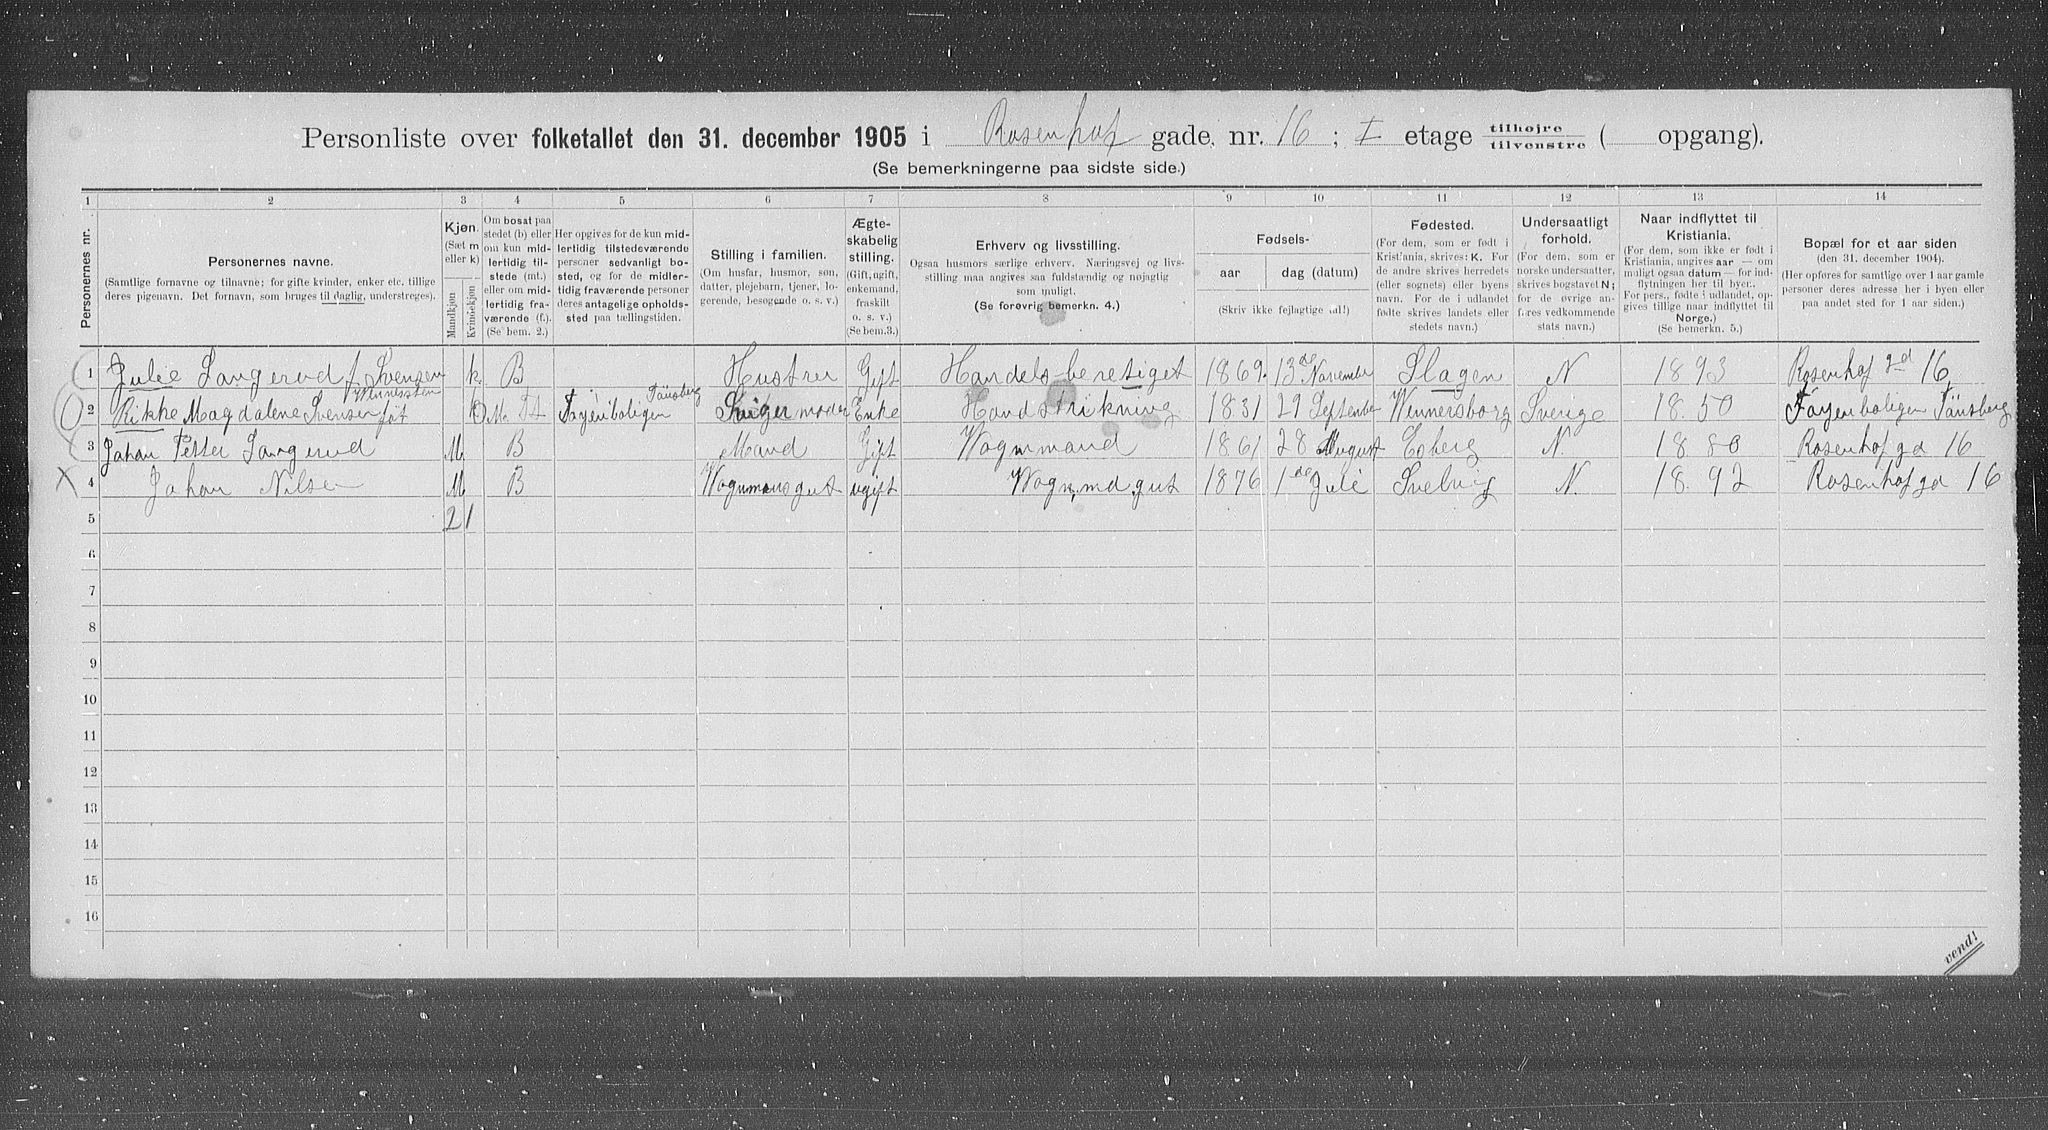 Personliste over folketallet den 31. december 1905 i Rosenhof gade, nr. 16 ; I etage tilhøjre tilvenstre ( opgang).
(Se bemerkningerne paa sidste side.)
1 2 3 4 5 6 7 8 9 10 11 12 13 14
Personernes nr.
Personernes navne.
(Samtlige fornavne og tilnavne; for gifte kvinder, enker etc. tillige
deres pigenavn. Det fornavn, som bruges til daglig, understreges).
Kjøn.
(Sæt m
eller k)
Mandkjøn
Kvindekjøn
Om bosat paa
stedet (b) eller
om kun mid-
lertidig til-
stede (mt.)
eller om mid-
lertidig fra-
værende (f.).
(Se bem. 2.)
Her opgives for de kun mid-
lertidig tilstedeværende
personer sedvanligt bo-
sted, og for de midler-
tidig fraværende personer
deres antagelige opholds-
sted paa tællingstiden.
Stilling i familien.
(Om husfar, husmor, søn,
datter, plejebarn, tjener, lo-
gerende, besøgende o. s. v.)
Ægte-
skabelig
stilling.
(Gift, ugift,
enkemand,
fraskilt
o. s. v.)
(Se bem.3.)
Erhverv og livsstilling.
Ogsaa husmors særlige erhverv. Næringsvej og livs-
stilling maa angives saa fuldstændig og nøjagtig
som muligt.
(Se forøvrig bemerkn. 4.)
Fødsels-
aar
dag (datum)
(Skriv ikke fejlagtige tal!)
Fødested.
(For dem, som er født i
Kristiania, skrives: K. For
de andre skrives herredets
(eller sognets) eller byens
navn. For de i udlandet
fødte skrives landets eller
stedets navn.)
Undersaatligt
forhold.
(For dem, som er
norske undersaatter,
skrives bogstavet N;
for de øvrige an-
føres vedkommende
stats navn.)
Naar indflyttet til
Kristiania.
(For dem, som ikke er født i
Kristiania, angives aar — om
muligt ogsaa datum — for ind-
flytningen her til byen.
For pers., fødte i udlandet, op-
gives tillige naar indflyttet til
Norge.)
(Se bemerkn. 5.)
Bopæl for et aar siden
(den 31. december 1904).
(Her opføres for samtlige over 1 aar gamle
personer deres adresse her i byen eller
paa andet sted for 1 aar siden.)
1 Julie Langerud f Svensen k. B Hustru Gift Handelsberetiget 1869. 13de November Slagen N 1893 Rosenhof gd 16
2 Rikke Magdalene Svensen föt k Føyenboligen Tönsberg Sviger moder Enke Haandstrikning 1831 29 September Wennersborg Sverge 18.50 Føyenboligen Tönsberg
3 Johan Petter Langerud M B Mand Gift Wognmand 1861 28 August N. 1880 Rosenhof gd 16
4 Johan Nilsen M B Wognmansgut ugift Wogn,md,gut 1876 1de Juli Svelvig N. 18.92 Rosenhof gd 16
5 2 1
6
7
8
9
10
11
12
13
14
15
16
vend!